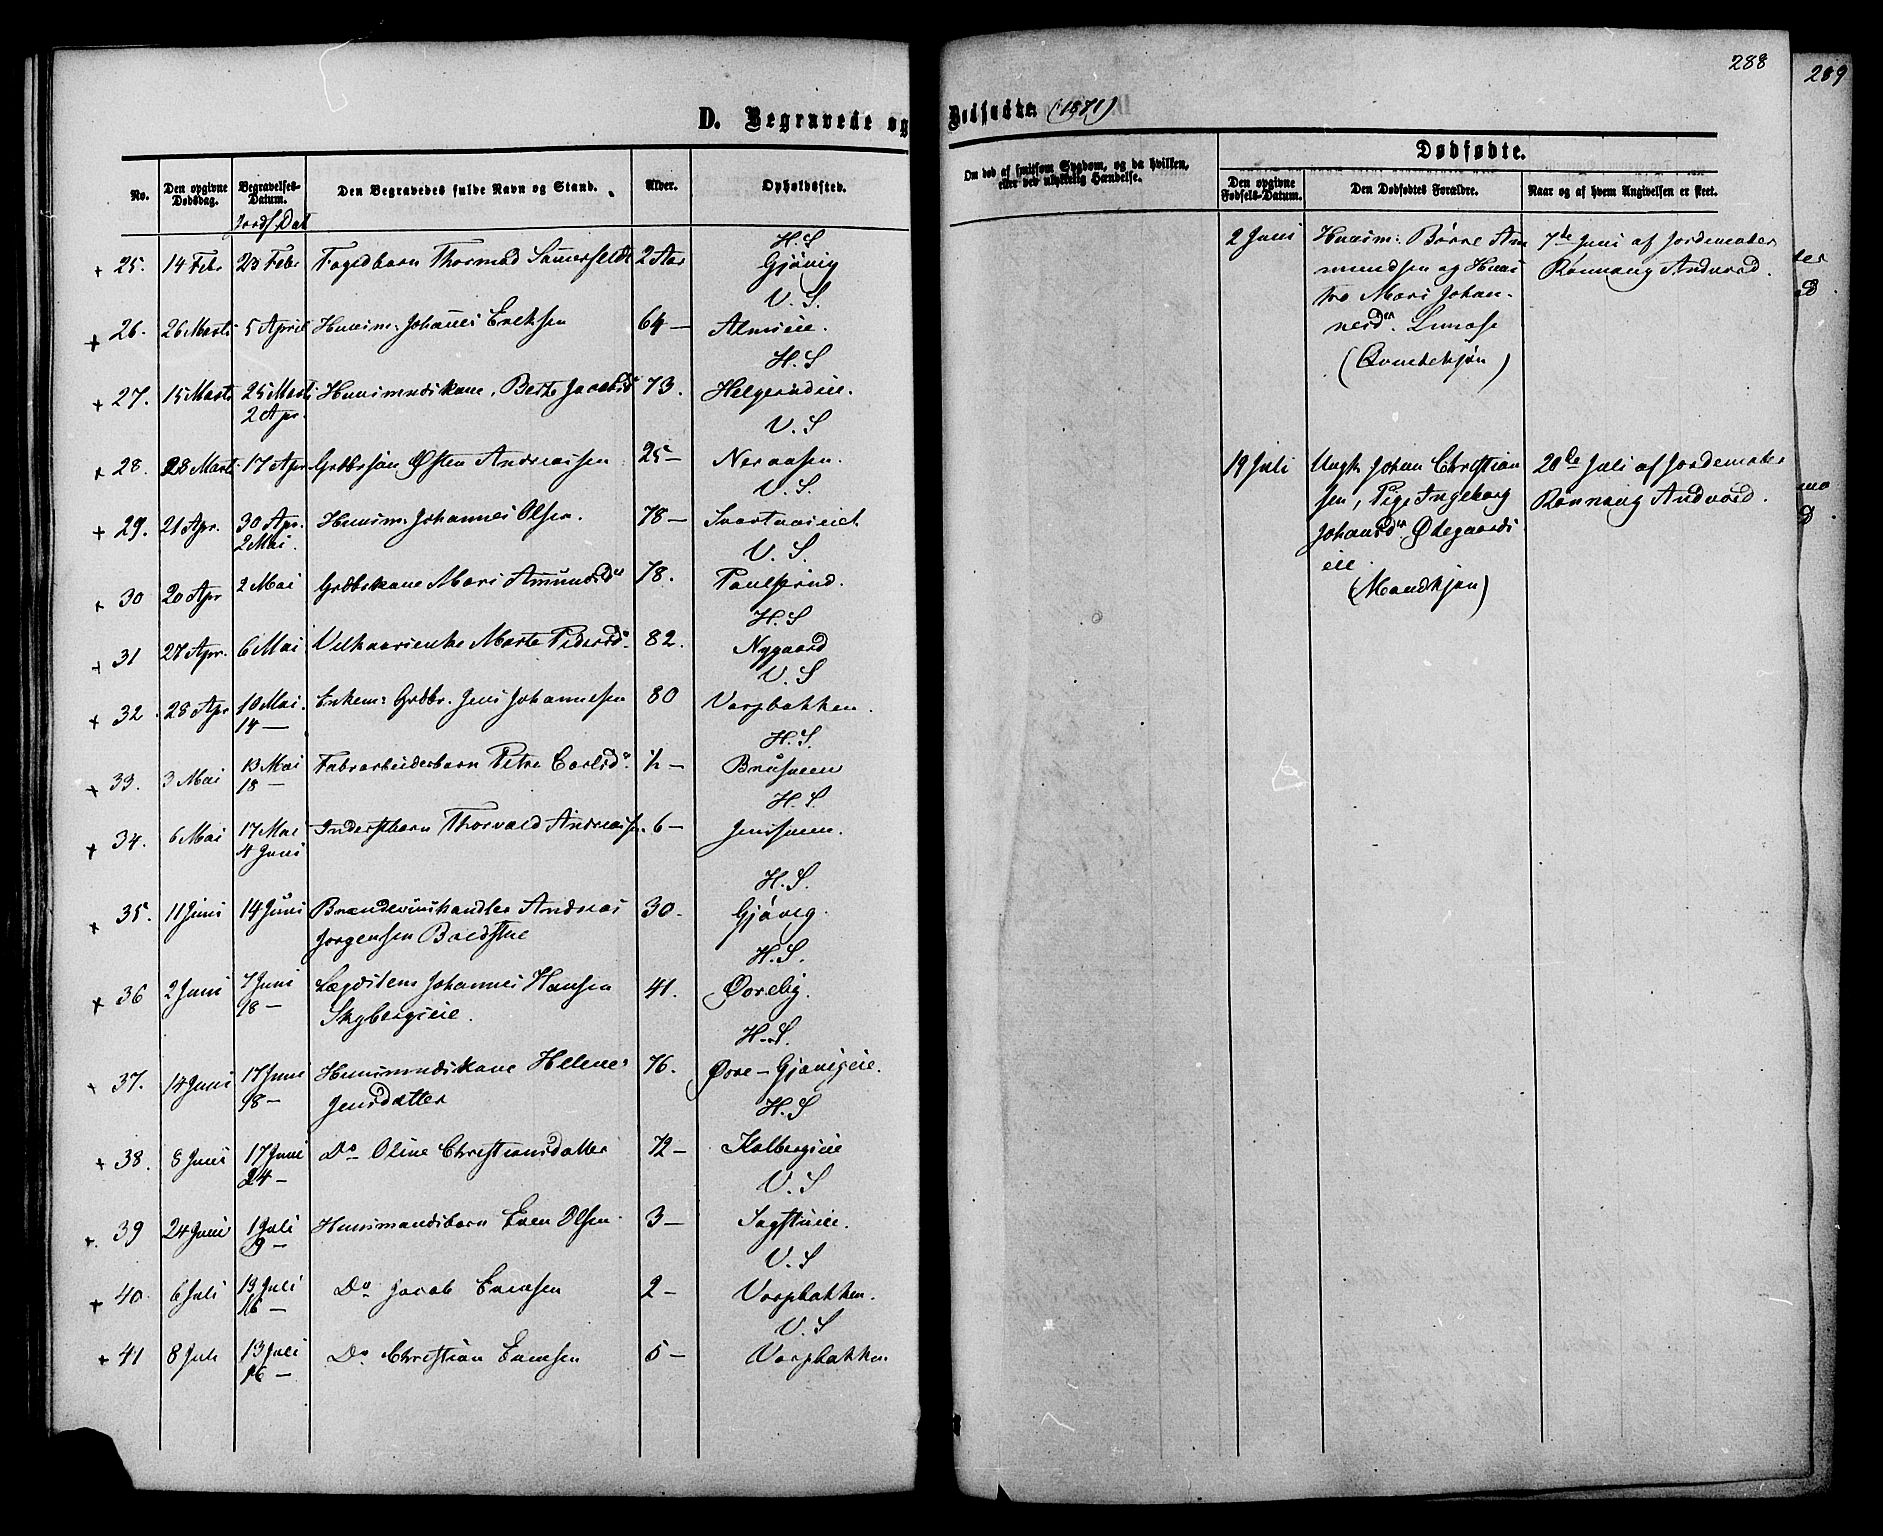 288
289
D. Begravede og Dødfødte. (1871)
No.
Den opgivne Dødsdag.
Begravelses-Datum.
Jordf. Dat
Den Begravedes fulde Navn og Stand.
Alder.
Opholdssted.
Om død af smitsom Sygdom, og da hvilken, eller ved ulykkelig Hændelse.
Dødfødte.
Den opgivne Fødsels-Datum.
Den Dødfødtes Forældre.
Naar og af hvem Angivelsen er skeet.
H. S
+ 25. 14 Febr 23 Febr Fogedbarn Thormod Sommerfeldt 2 Aar Gjøvig
V. S.
+ 26. 26 Marts 5 April Huusm: Johannes Eriksen 64 — Almeie.
H. S
+ 27. 15 Marts 25 Marts Huusmndskone, Berte Jacobsd 73. Helgerudeie.
2 Apr.
V. S
+ 28. 28 Marts 17 Apr Grdbrsøn Østen Andreassen 25 — Neraasen.
V. S.
+ 29. 21 Apr. 30 Apr. Huusm: Johannes Olsen. 78 — Svartvaseiet
2 Mai.
V. S.
+ 30 20 Apr 2 Mai Grdbrkone Mari Amundsdr 78. Paulsrud.
H. S
+ 31 27 Apr. 6 Mai Vilkaarsenke Marte Pedersdr. 82. Nygaard
V. S
+ 32. 28 Apr 10 Mai. Enkem: Grdbr. Jens Johannesen 80 Vorpbakken.
14 —
H. S.
+ 33. 3 Mai 13 Mai Fabrarbeiderbarn Petra Carlsdr. ½ — Brusveen
18 —
H. S.
+ 34. 6 Mai 17 Mai Inderstbarn Thorvald Andreass. 6 — Jensveen.
4 Juni
H. S.
+ 35. 11 Juni 14 Juni Brændeviinshandler Andreas 30. Gjøvig.
Jørgensen Boldstue
H. S.
+ 36 2 Juni 7 Juni Lægdslem Johannes Hansen 41. Øverbÿ.
18 —
Skybergseie.
H. S.
+ 37. 14 Juni 17 Juni Huusmandskone Helene 76. Øvre-Gjøvigeie.
18 —
Jensdatter
H. S
+ 38. 8 Juni 17 Juni Do Oline Christiansdatter 72 — Kolbergseie
24 —
V. S
+ 39 24 Juni 1 Juli Huusmandsbarn Even Olsen 3 — Sogstueie.
9 —
V. S
+ 40. 6 Juli 13 Juli Do Jacob Evensen 2 — Vorpbakken.
16 —
V. S
+ 41 8 Juli 13 Juli Do Christian Evensen 5 — Vorpbakken
16 —
2 Juni Huusm: Børre Am 7de Juni af Jordemoder
mundsen og Huus Rønnaug Andvord.
tro Mari Johan-
nesdr.
(Qvindekjøn)
19 Juli Ungk. Johan Christian 20de Juli af Jordemoder
sen, Pige Ingeborg Rønnaug Andvord.
Johansdr. Ødegaards
eie.
(Mandkjøn)